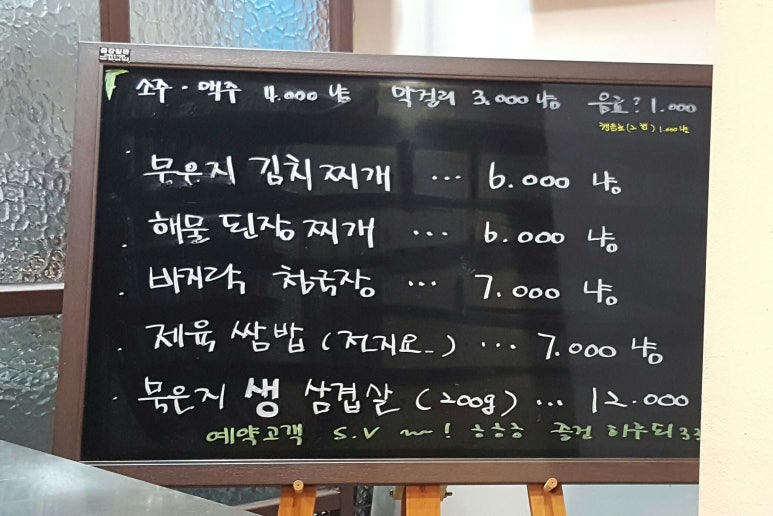 소주 · 맥주 4.000 냥 막걸리 3.000 냥 음료? 1.000
1.000 냥
묵은지 김치찌개 ... 6.000 냥
. 해물 된장찌개 ... 6.000 냥
. 바지락 청국장 ... 7.000 냥
. 제육 쌈밥 (전지요..) ... 7.000 냥
. 묵은지 생 삼겹살 (200g) ... 12.000
예약고객 S.V ~~! ㅎㅎㅎ 즐건 하루되